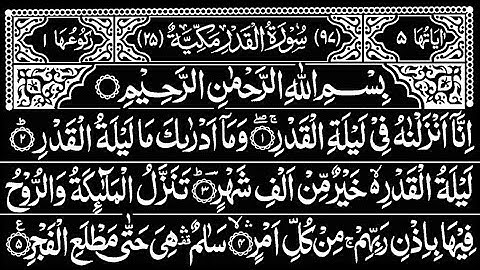 اٰيَاتُهَا ٥ (٩٧) سُوْرَةُ الْقَدْرِ مَكِّيَّةٌ (٢٥) رُكُوْعُهَا ١
بِسْمِ اللّٰهِ الرَّحْمٰنِ الرَّحِيْمِ
اِنَّاۤ اَنْزَلْنٰهُ فِيْ لَيْلَةِ الْقَدْرِ ۝١ وَمَاۤ اَدْرٰىكَ مَا لَيْلَةُ الْقَدْرِ ۝٢
لَيْلَةُ الْقَدْرِ ەۙ خَيْرٌ مِّنْ اَلْفِ شَهْرٍ ۝٣ تَنَزَّلُ الْمَلٰٓئِكَةُ وَالرُّوْحُ
فِيْهَا بِاِذْنِ رَبِّهِمْ ۚ مِنْ كُلِّ اَمْرٍ ۝٤ سَلٰمٌ ۛ هِيَ حَتّٰى مَطْلَعِ الْفَجْرِ ۝٥